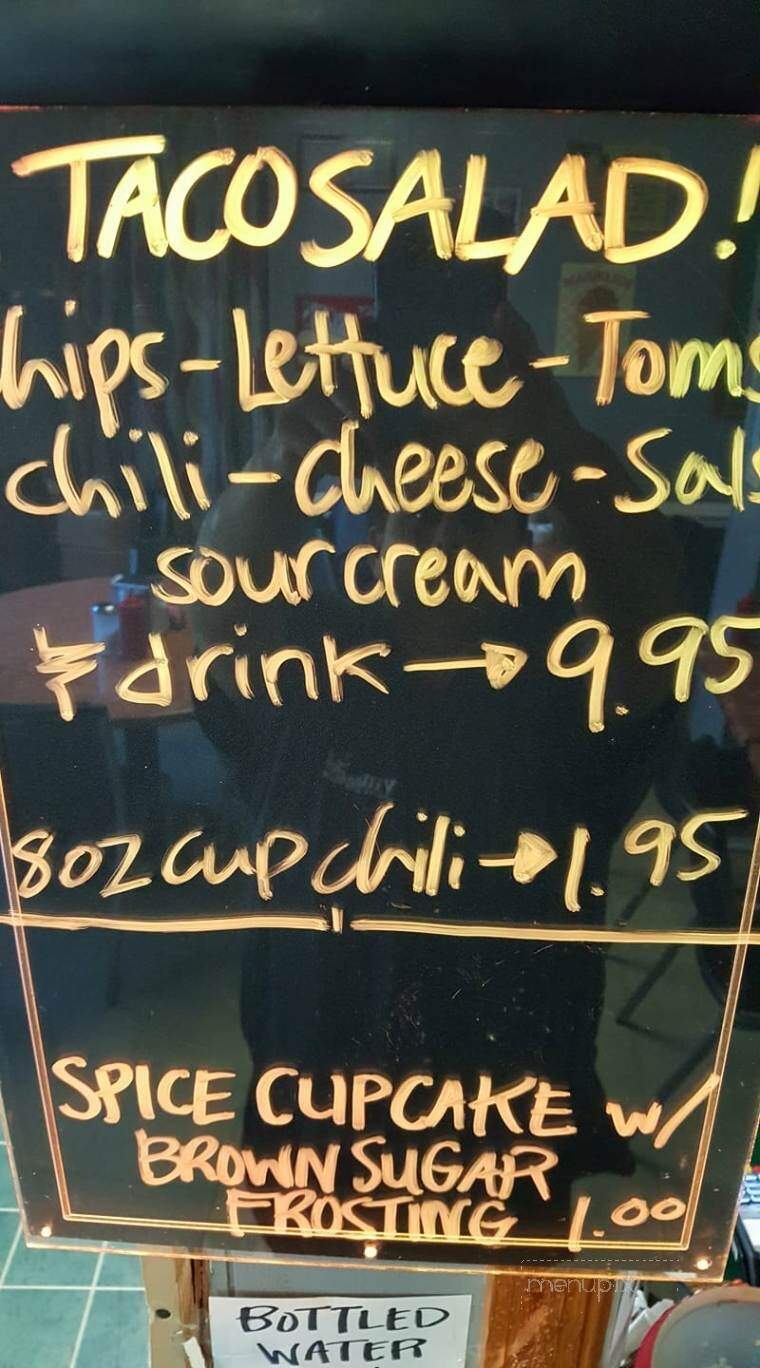 TACO SALAD!
hips - Lettuce - Toms
chili - cheese - Sals
sour cream
& drink → 9.95
8oz cup chili → 1.95
SPICE CUPCAKE w/
BROWN SUGAR
FROSTING 1.00
BOTTLED
WATER